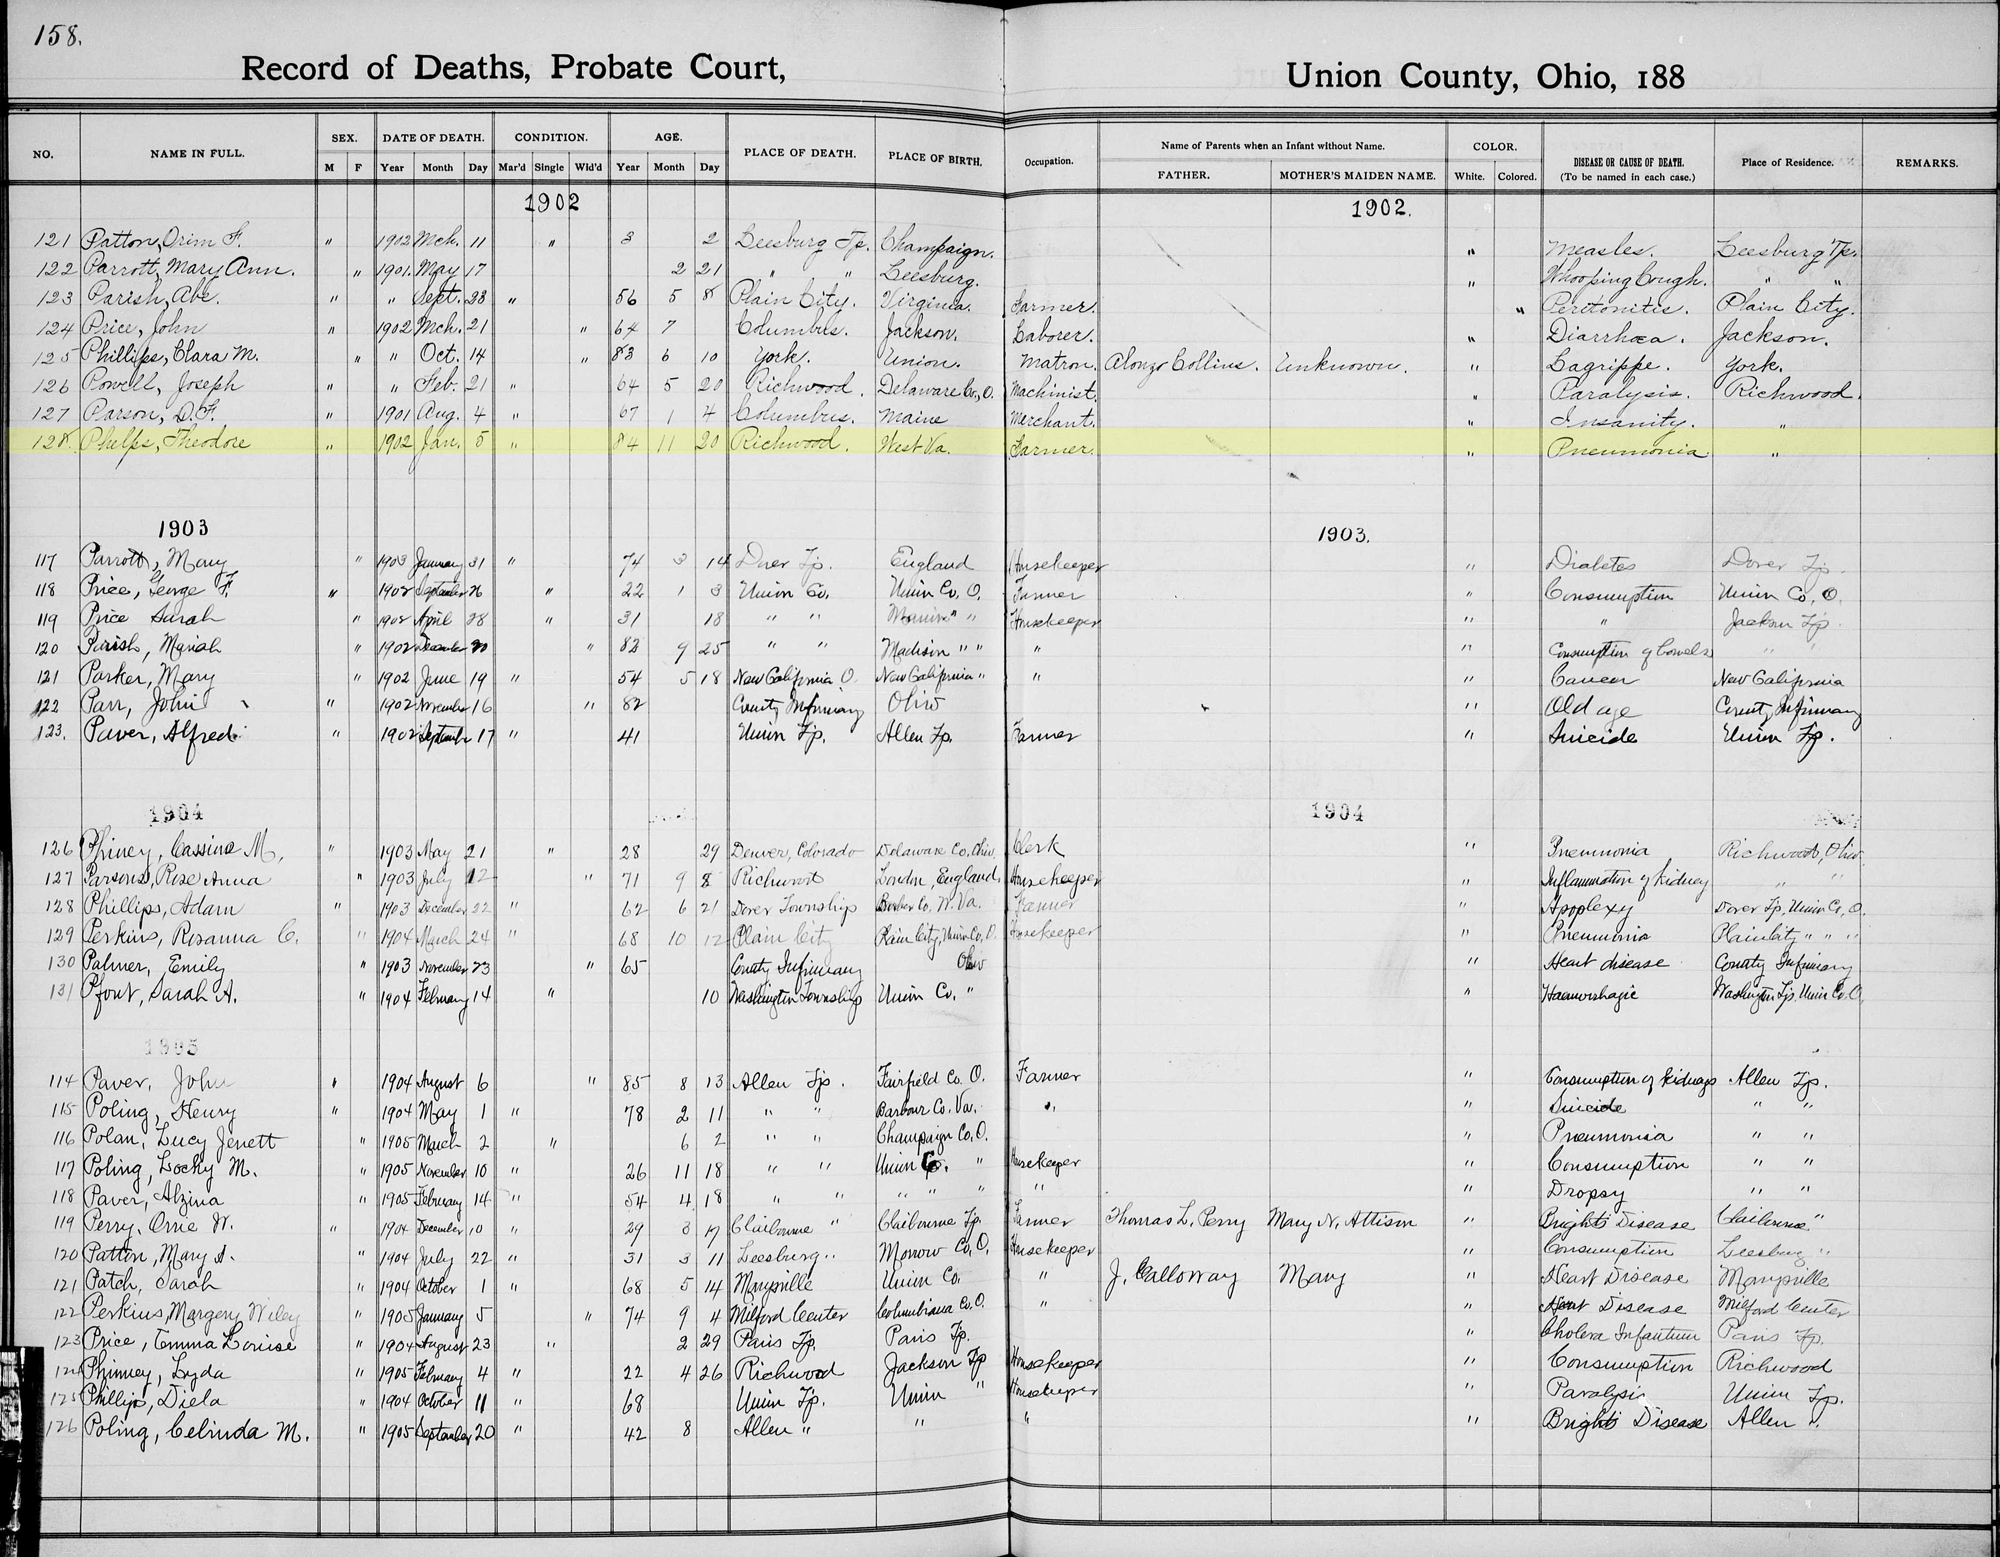 158.
Record of Deaths, Probate Court, Union County, Ohio, 188
NO. NAME IN FULL. SEX. M F DATE OF DEATH. Year Month Day CONDITION. Mar'd Single Wid'd AGE. Year Month Day PLACE OF DEATH. PLACE OF BIRTH. Occupation. Name of Parents when an Infant without Name. FATHER. MOTHER'S MAIDEN NAME. COLOR. White. Colored. DISEASE OR CAUSE OF DEATH. (To be named in each case.) Place of Residence. REMARKS.
1902 1902.
121 Patton, Orim F. " 1902 Mch. 11 " 3 2 Leesburg Tp. Champaign. " Measles. Leesburg Tp.
122 Parrott, Mary Ann. " 1901 May 17 2 21 " " Leesburg. " Whooping Cough. " "
123 Parish, Abe. " " Sept. 28 " 56 5 8 Plain City. Virginia. Farmer. " Peritonitis. Plain City.
124 Price, John " 1902 Mch. 21 " 64 7 Columbus. Jackson. Laborer. " Diarrhoea. Jackson.
125 Phillips, Clara M. " " Oct. 14 " 83 6 10 York. Union. Matron. Alonzo Collins. Unknown. " Lagrippe. York.
126 Powell, Joseph " " Feb. 21 " 64 5 20 Richwood. Delaware Co., O. Machinist. " Paralysis. Richwood.
127 Parson, D. F. " 1901 Aug. 4 " 67 1 4 Columbus. Maine Merchant. " Insanity. "
128. Phelps, Theodore " 1902 Jan. 5 " 84 11 20 Richwood. West Va. Farmer. " Pneumonia "
1903 1903.
117 Parrott, Mary " 1903 January 31 " 74 3 14 Dover Tp. England Housekeeper " Diabetes Dover Tp.
118 Price, George F. " 1902 September 26 " 22 1 3 Union Co. Union Co. O. Farmer " Consumption Union Co, O.
119 Price Sarah " 1902 April 28 " 31 18 " " " " Housekeeper " " Jackson Tp.
120 Parish, Mariah " 1902 December 20 " 82 9 25 " " Madison " " " " Consumption of bowels " "
121 Parker, Mary " 1902 June 19 " 54 5 18 New California O. New California " " " Cancer New California
122 Parr, John " 1902 November 16 " 82 County Infirmary Ohio " Old age County Infirmary
123. Paver, Alfred " 1902 September 17 " 41 Union Tp. Allen Tp. Farmer " Suicide Union Tp.
1904 1904
126 Phiney, Cassine M. " 1903 May 21 " 28 29 Denver, Colorado Delaware Co, Ohio Clerk " Pneumonia Richwood, Ohio
127 Parsons, Rose Anna " 1903 July 12 " 71 9 8 Richwood London, England, Housekeeper " Inflammation of kidney " "
128 Phillips, Adam " 1903 December 22 " 62 6 21 Dover Township W. Va. Farmer " Apoplexy Dover Tp, Union Co, O.
129 Perkins, Rosanna C. " 1904 March 24 " 68 10 12 Plain City Plain City, Union Co, O. Housekeeper " Pneumonia Plain City " " "
130 Palmer, Emily " 1903 November 23 " 65 County Infirmary Ohio " Heart disease County Infirmary
131 Pfout, Sarah A. " 1904 February 14 " 10 Washington Township Union Co. " " Haemorhagic Washington Tp. Union Co. O.
1905
114 Paver, John " 1904 August 6 " 85 8 13 Allen Tp. Fairfield Co. O. Farmer " Consumption of kidneys Allen Tp.
115 Poling, Henry " 1904 May 1 " 78 2 11 " " Barbour Co. Va. " " Suicide " "
116 Polan, Lucy Jenett " 1905 March 2 " 6 2 " " Champaign Co. O. " Pneumonia " "
117 Poling, Locky M. " 1905 November 10 " 26 11 18 " " Union Co. " Housekeeper " Consumption " "
118 Paver, Alzina " 1905 February 14 " 54 4 18 " " " " " " " Dropsy " "
119 Perry, Orrie W. " 1904 December 10 " 29 3 17 Claibourne " Claibourne Tp. Farmer Thomas L. Perry Mary N. Attison " Brights Disease Claibourne "
120 Patton, Mary A. " 1904 July 22 " 31 3 11 Leesburg " Morrow Co, O. Housekeeper " Consumption Leesburg "
121 Patch, Sarah " 1904 October 1 " 68 5 14 Marysville Union Co. " J. Calloway Mary " Heart Disease Marysville
122 Perkins, Margery Wiley " 1905 January 5 " 74 9 4 Milford Center Columbiana Co. O. " " Heart Disease Milford Center
123 Price, Emma Louise " 1904 August 23 " 2 29 Paris Tp. Paris Tp. " Cholera Infantum Paris Tp.
124 Phinney, Lyda " 1905 February 4 " 22 4 26 Richwood Jackson Tp Housekeeper " Consumption Richwood
125 Phillips, Diela " 1904 October 11 " 68 Union Tp. Union " Housekeeper " Paralysis Union Tp.
126 Poling, Celinda M. " 1905 September 20 " 42 8 Allen " " " " Brights Disease Allen "